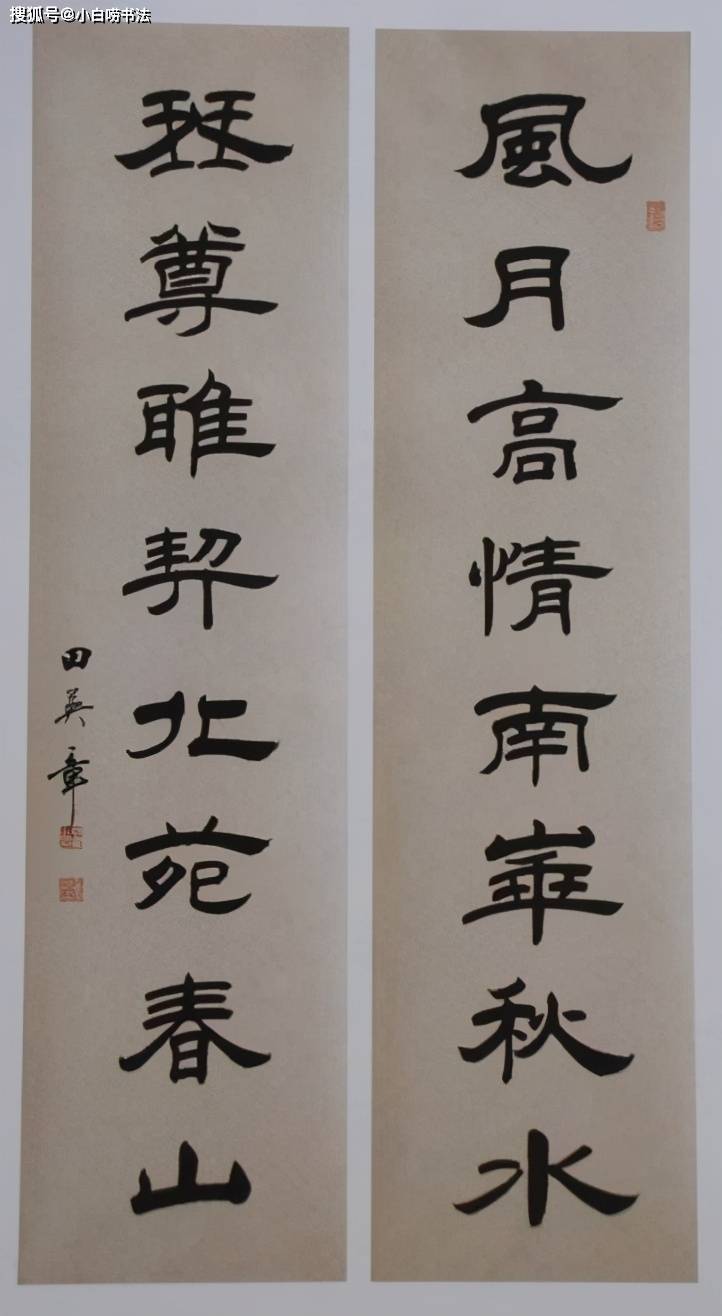 搜狐号@小白唠书法
風月高情南華秋水
琴尊雅契北苑春山
田英章